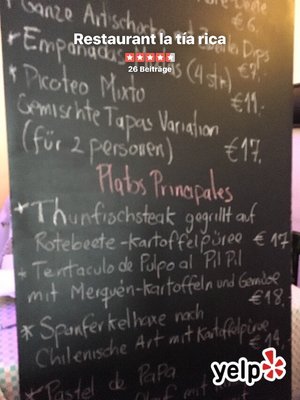 Restaurant la tía rica
26 Beiträge
Ganze Artischocke
€6,
*Empanadas (4 stk)
€9,
*Picoteo Mixto
€11,
Gemischte Tapas Variation
(für 2 personen) €17,
Platos Principales
*Thunfischsteak gegrillt auf
Rotebeete-Kartoffelpüree €17
*Tentaculo de Pulpo al Pil Pil
mit Merquén-Kartoffeln und Gemüse
€18,
*Spanferkelhaxe nach
Chilenische Art mit Kartoffelpüree
€14,
*Pastel de Papa
mit
yelp